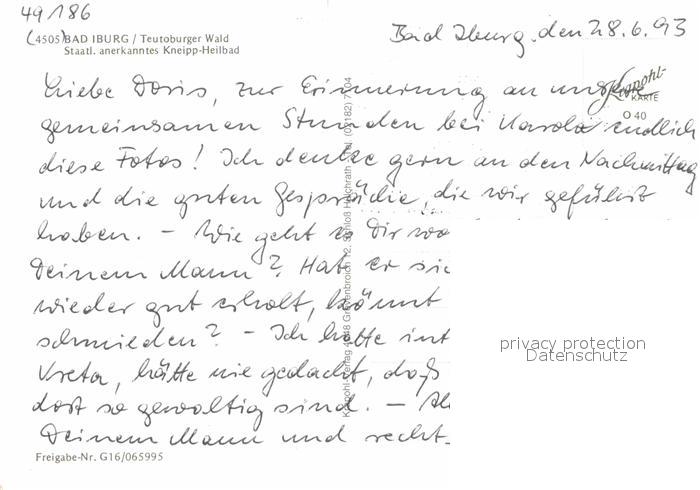 49/186
(4505) BAD IBURG / Teutoburger Wald
Staatl. anerkanntes Kneipp-Heilbad
Bad Iburg, den 28.6.93
Krapohl-
KARTE
O 40
Liebe Doris, zur Erinnerung an unsere
gemeinsamen Stunden bei Karola endlich
diese Fotos! Ich denke gern an den Nachmittag
und die guten Gespräche, die wir geführt
haben. – Wie geht es Dir
Deinem Mann? Hat er
wieder gut erholt, könnt
schmieden? – Ich hatte
Kreta, hätte nie gedacht, daß
dort so gewaltig sind. –
Deinem Mann und recht
Krapohl-Verlag 4048 Grevenbroich 12, Schloß Hülchrath, Tel. (02182)
privacy protection
Datenschutz
Freigabe-Nr. G16/065995